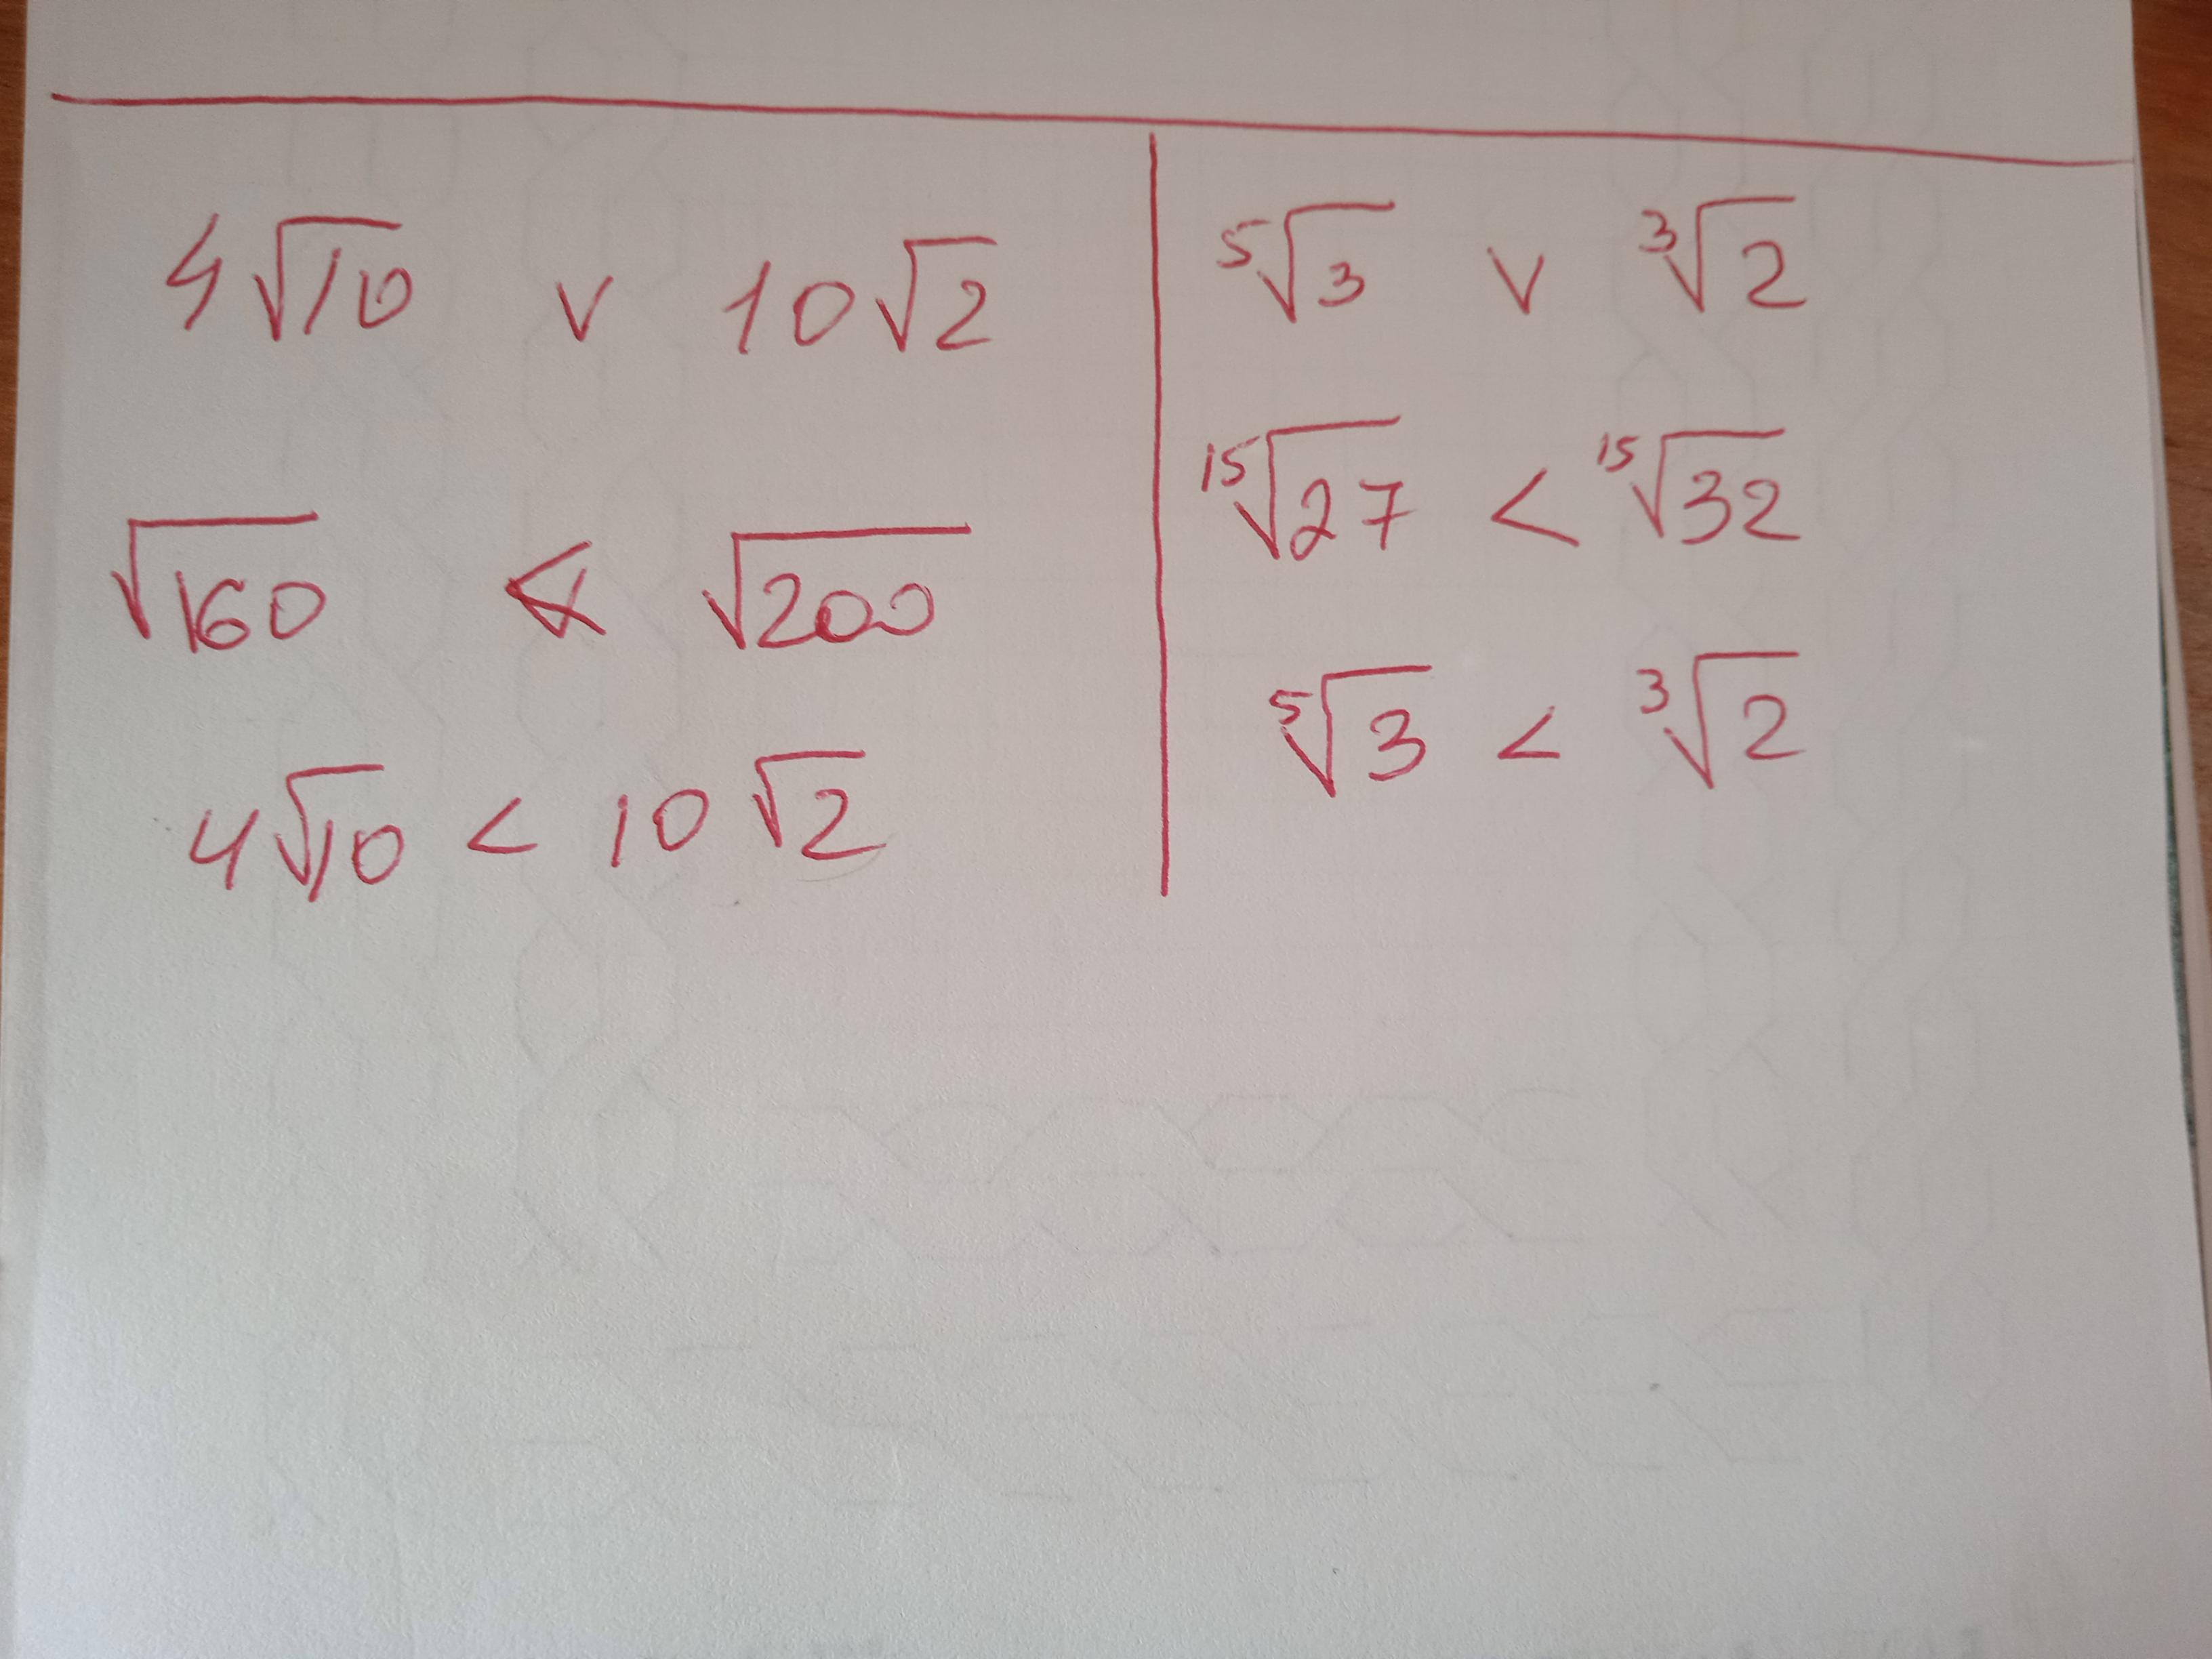 4√10 v 10√2
√160 < √200
4√10 < 10√2
⁵√3 v ³√2
¹⁵√27 < ¹⁵√32
⁵√3 < ³√2